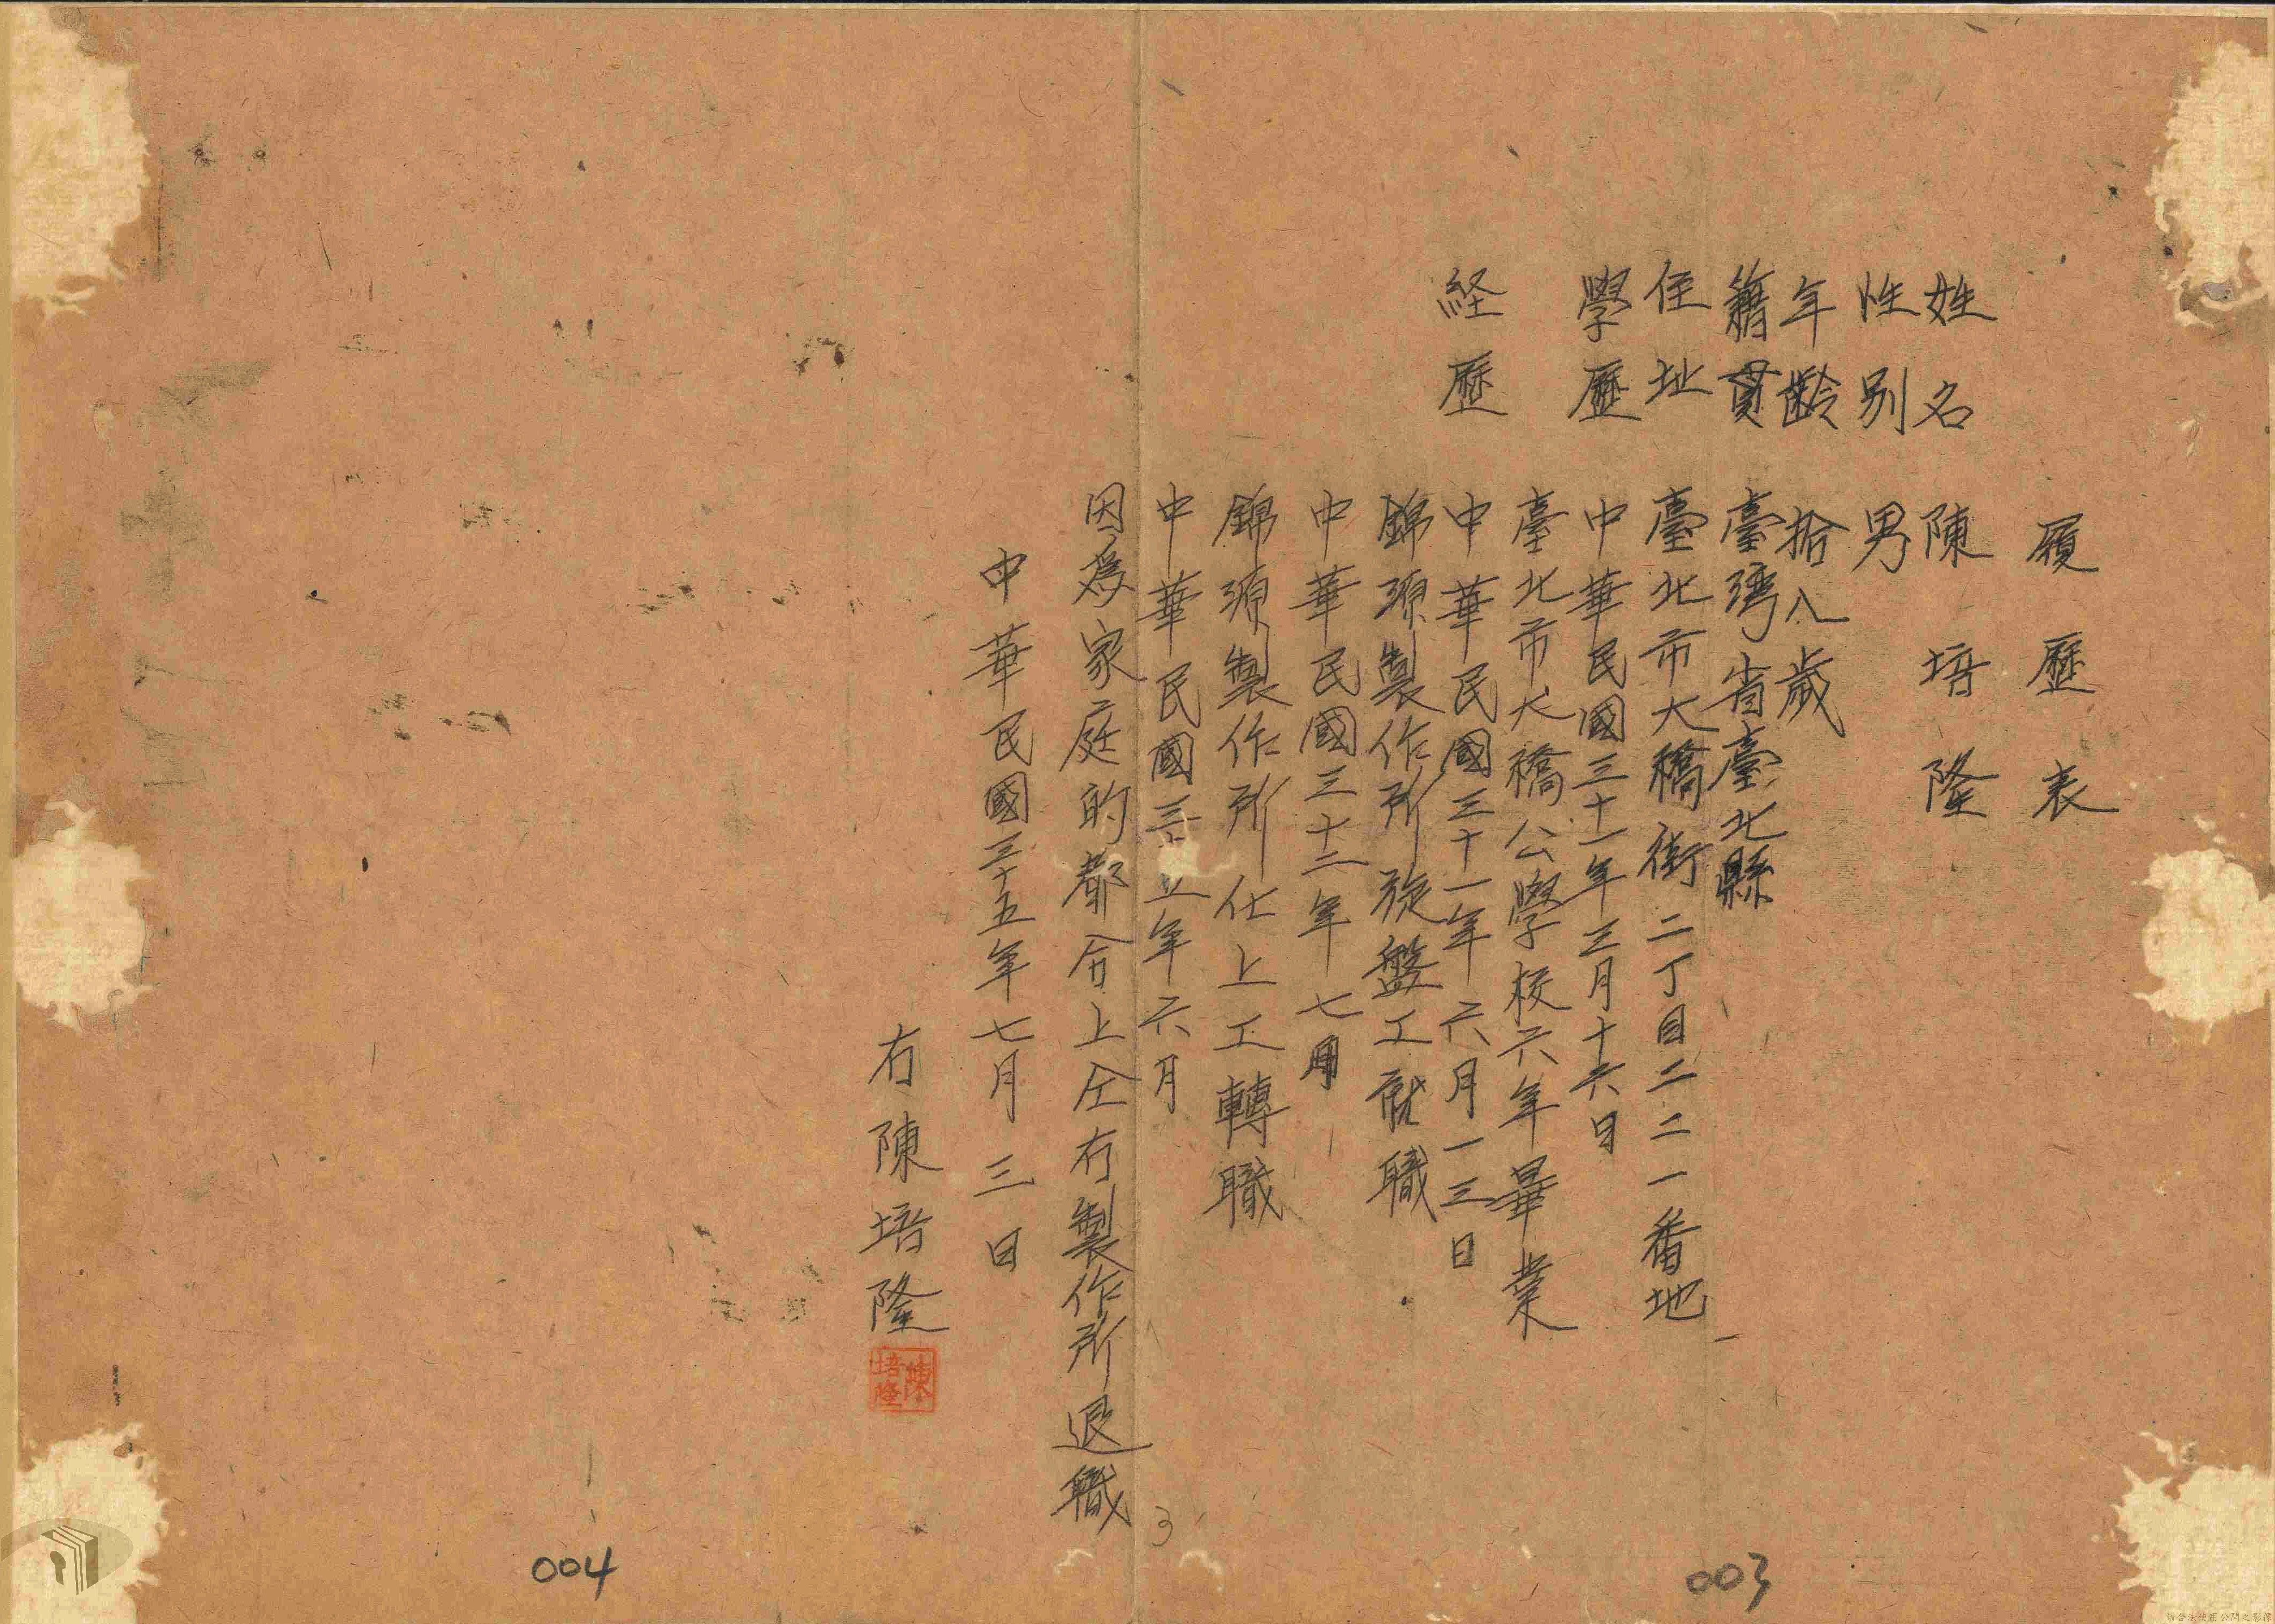 履歷表
姓名 陳培隆
性別 男
年齡 拾八歲
籍貫 臺灣省臺北縣
住址 臺北市大橋街二丁目二二二一番地
學歷 中華民國三十一年三月十六日
臺北市大橋公學校六年畢業
経歷 中華民國三十一年六月一三日
錦源製作所旋盤工就職
中華民國三十二年七月
錦源製作所仕上工轉職
中華民國三十五年六月
因為家庭的都合上仝右製作所退職
中華民國三十五年七月三日
右陳培隆
陳培隆
3
004
003